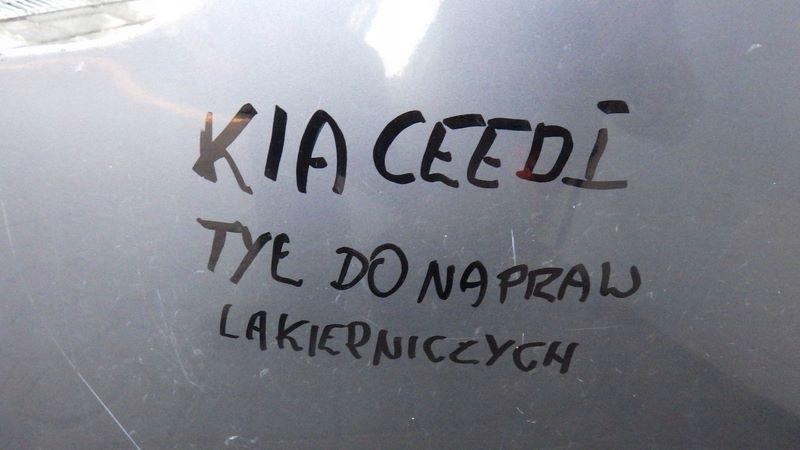 KIA CEED I
TYŁ DO NAPRAW
LAKIERNICZYCH